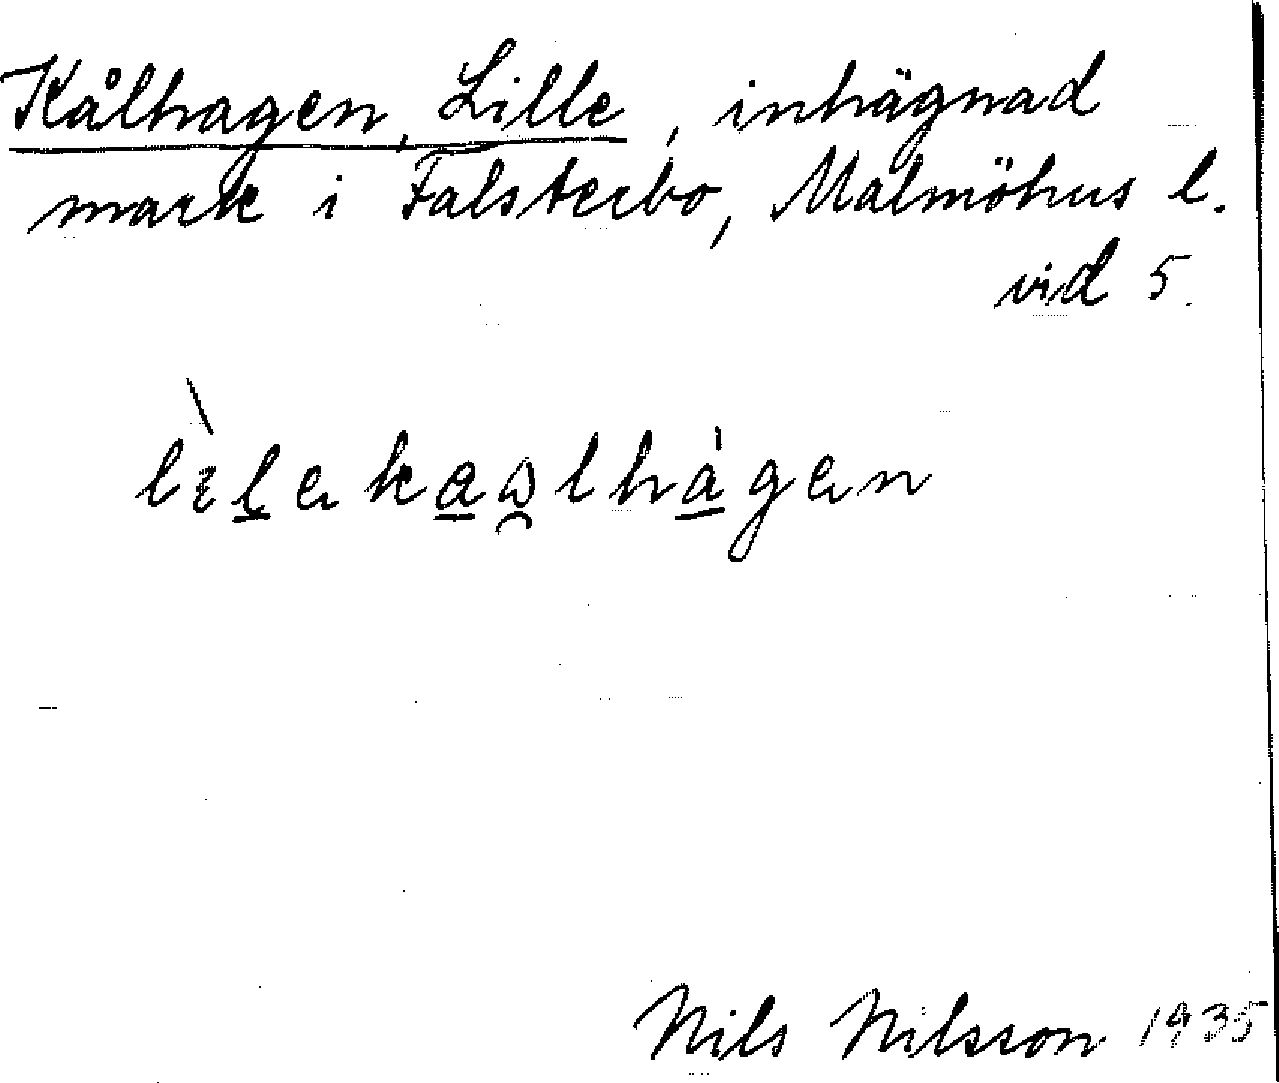 Kålhagen, Lille, inhägnad
mark i Falsterbo, Malmöhus l.
vid 5.
lìlekaɷlhàgen
Nils Nilsson 1935